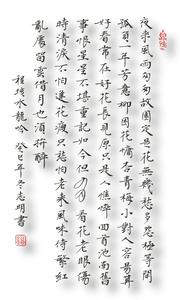 夜來風雨匆匆故園定是花無幾愁多怨極等閑
孤負一年芳意柳困花慵杏青梅小對人容易算
好春常在好花長見原只是人憔悴回首池南舊
事恨星星不堪重記如今但有看花老眼傷
時清淚不怕逢花瘦只愁怕老來風味待繁紅
亂處留雲借月也須拚醉
程垓水龍吟 癸巳年冬志明書